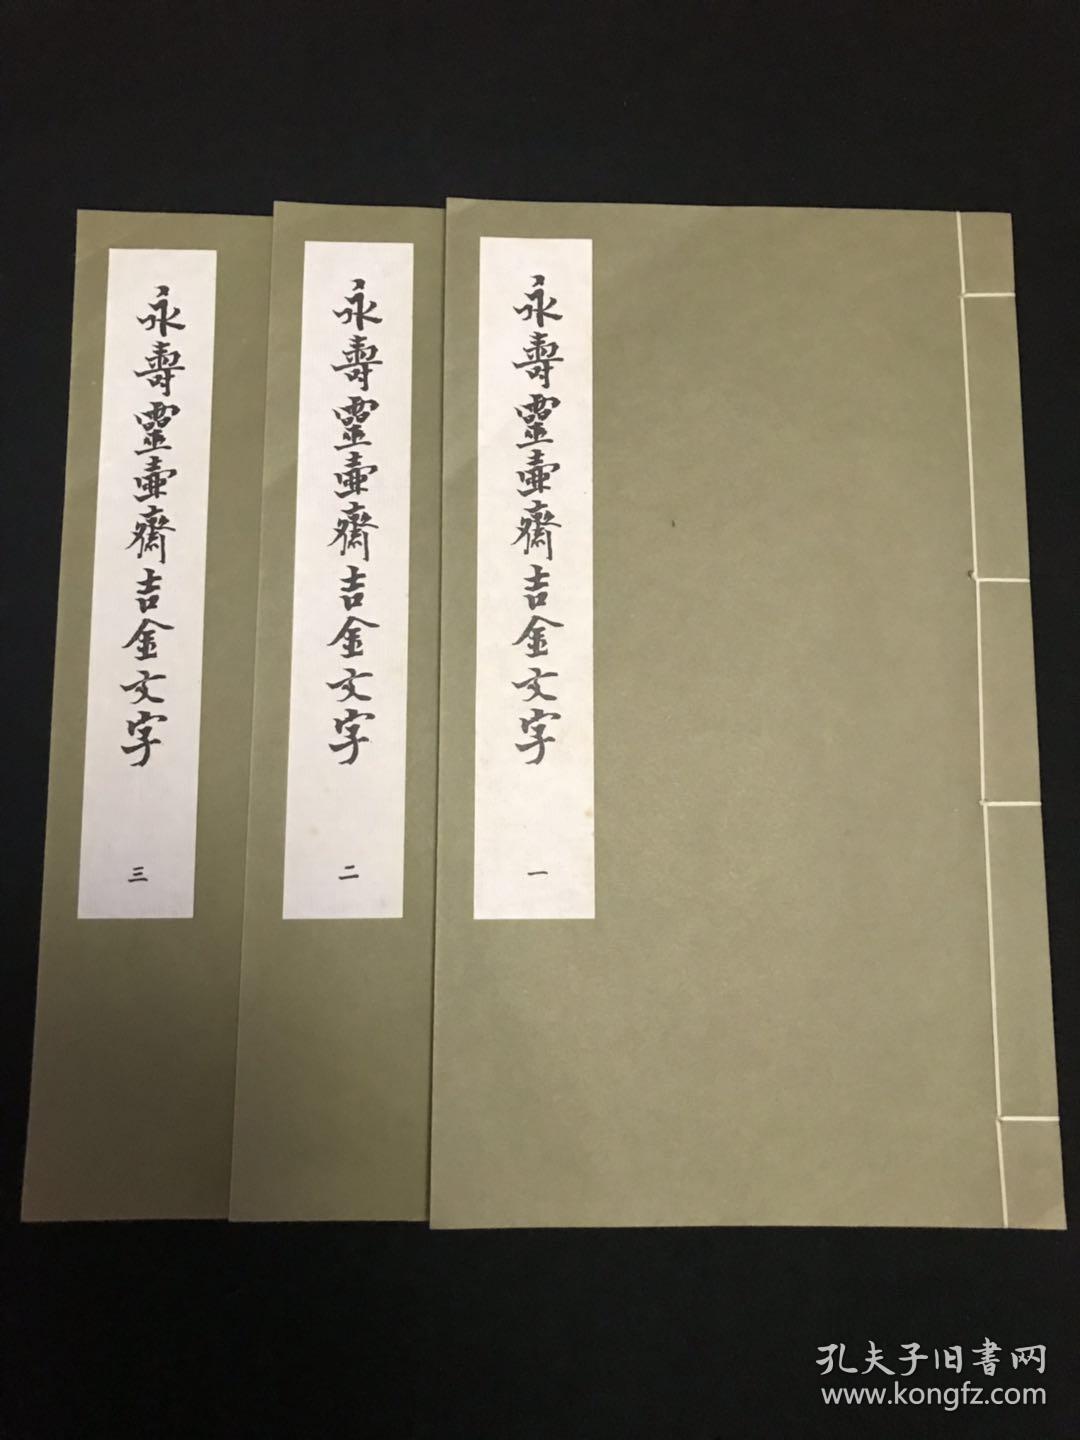 永壽靈壷齋吉金文字
一
永壽靈壷齋吉金文字
二
永壽靈壷齋吉金文字
三
孔夫子旧書网
www.kongfz.com